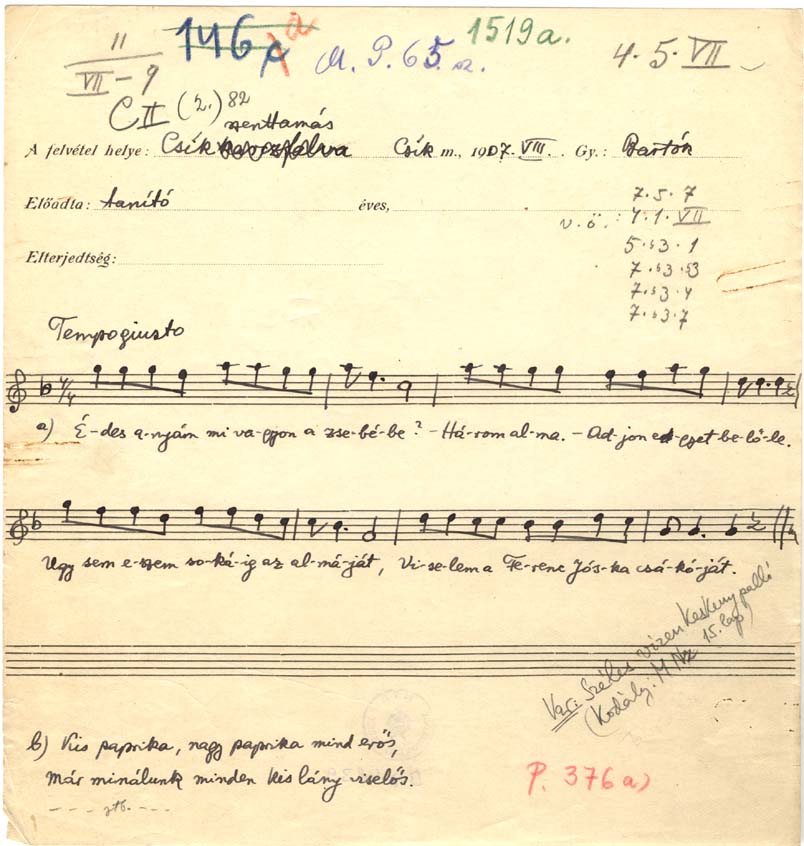 11
VII – 9
146 a
M. P. 65. sz.
1519a.
4. 5. VII
C II (2.) 82
szenttamás
A felvétel helye: Csík Csík m., 1907. VIII. Gy.: Bartók
Előadta: tanító éves,
7. 5. 7
v. ö.: 4. 1. VII
5. ♭3. 1
7. ♭3. ♭3
7. ♭3. 4
7. ♭3. 7
Elterjedtség:
Tempogiusto
4/4
a) É-des a-nyám mi va-gyon a zse-bé-be? – Há-rom al-ma. – Ad-jon egyet be-lő-le.
Ugy sem e-szem so-ká-ig az al-má-ját, Vi-se-lem a Fe-renc Jós-ka csá-kó-ját.
Var: Széles vizen keskeny palló
(Kodály: M Nz 15. lap)
b) Kis paprika, nagy paprika mind erős,
Már minálunk minden kis lány viselős.
– – – stb. – – –
P. 376 a)